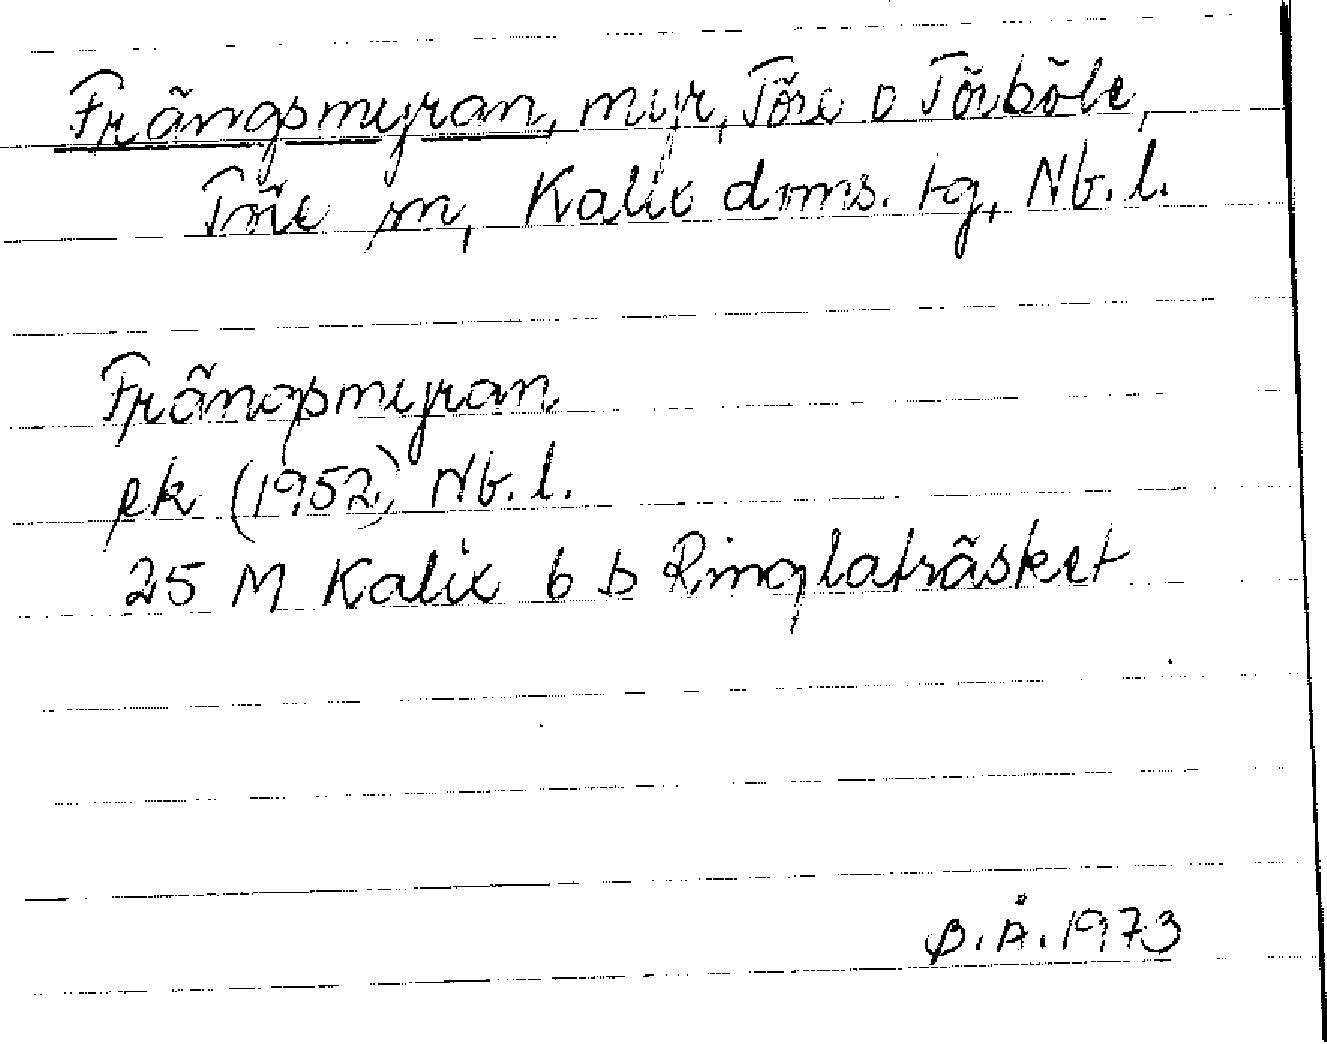 Frängsmyran, myr, Töre o Törböle,
Töre sn, Kalix doms. tg, Nb. l.
Frängsmyran
ek (1952) Nb. l.
25 M Kalix 6 b Ringlaträsket
B. Å. 1973